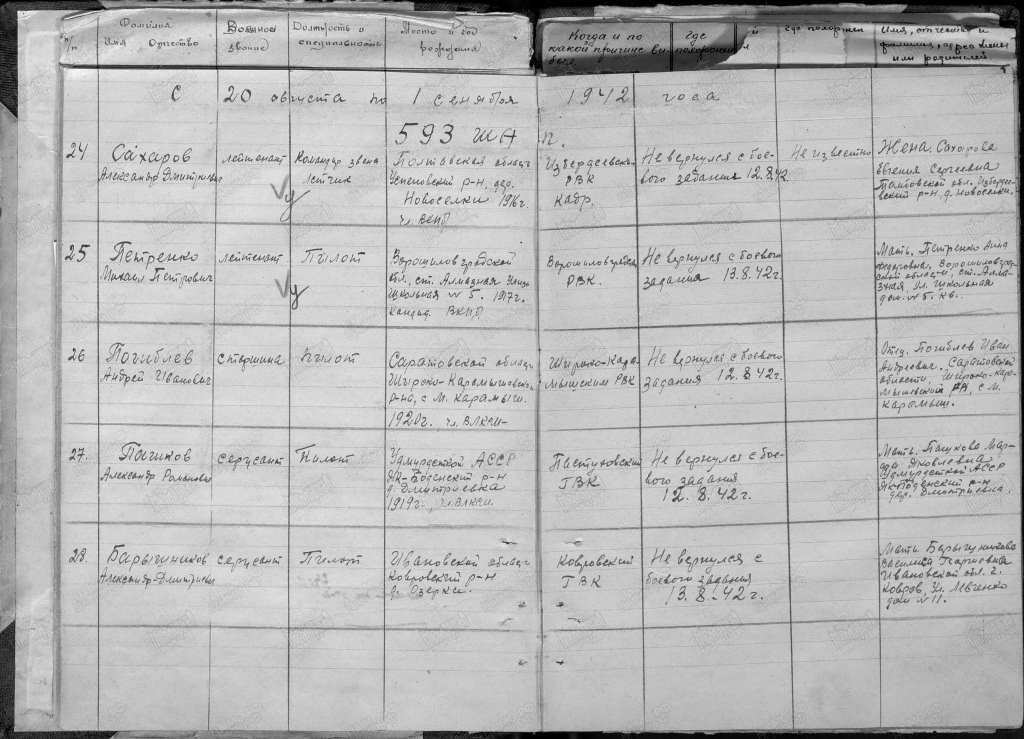 №/п
Фамилия
Имя, Отчество
Военное
звание
Должность и
специальность
Место и год
рождения
Когда и по
какой причине вы-
был
Где
похоронен
где похоронен
Имя, отчество и
фамилия, адрес жены
или родителей
С 20 августа по 1 сентября 1942 года
593 ШАП.
24
Сахаров
Александр Дмитриевич
лейтенант
Командир звена
Летчик
Полтавская область
Успеновский р-н, дер.
Новоселки 1916г.
чл. ВКПб
РВК
Кадр.
Не вернулся с бое-
вого задания 12.8.42.
Не известно
Жена Сахарова
Евгения Сергеевна
обл.
р-н, д. Новоселки.
25
Петренко
Михаил Петрович
лейтенант
Пилот
Ворошиловградской
обл., ст. Алмазная улица
Школьная № 5. 1917г.
Кандид. ВКПб
Ворошиловградск.
РВК.
Не вернулся с боевого
задания 13.8.42г.
Мать, Петренко Анна
Федоровна, Ворошиловград-
ской области, ст. Алма-
зная, ул. Школьная
дом. № 5. кв.
26
Погиблев
Андрей Иванович
старшина
Пилот
Саратовской области
Широко-Карамышевск.
р-на, с М. Карамыш.
1920г. чл. ВЛКСМ
Широко-Кара-
мышским РВК
Не вернулся с боевого
задания 12.8.42г.
Отец. Погиблев Иван
Андреевич. Саратовской
области, Широко-кара-
мышевский РВ, с М.
Карамыш.
27.
Пашков
Александр Романович
сержант
Пилот
Удмурдсткой АССР
Як-Бодьинский р-н
д. Дмитриевка
1919г., чл. ВЛКСМ.
Пастуховский
ГВК
Не вернулся с бое-
вого задания
12.8.42г.
Мать. Пашкова Мар-
фа Яковлевна
Удмурдсткой АССР
р-н
дер. Дмитриевка.
28.
Барычников
Александр Дмитриевич
сержант
Пилот
Ивановской области
Ковровский р-н
д. Озерки.
Ковровский
ГВК
Не вернулся с
боевого задания
13.8.42г.
Мать Барычникова
Василиса
Ивановской обл. г.
Ковров, ул. Левченко
дом № 11.